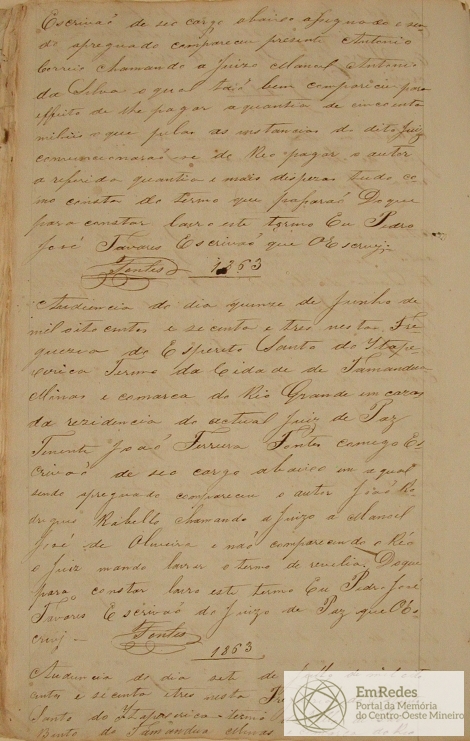 Escrivaõ de seo cargo abaixo apregoado e sen
do apregoado compareceu prezente Antonio
Correio chamando a Juizo Manoel Antonio
da Silva o qual taõ bem compareceu para
effeito de lhe pagar a quantia de cincoenta
milreis o que pelas as instancias do dito Juiz
convencionaraõ-se de Reo pagar o autor
a referida quantia e mais dispezas tudo co
mo consta do termo que paparaõ Do que
para constar lavro este termo Eu Pedro
José Tavares Escrivaõ que OEscrevj.
Fontes 1863
Audiencia do dia quinze de Junho de
mil oito centos e secenta e tres nesta Fre
guezia do Espereto Santo do Itape
cerica Termo da Cidade de Tamandua
Minas e comarca do Rio Grande em cazas
da rezidencia do actual Juiz de Paz
Tenente Joaõ Ferreira Fontes comigo Es
crivaõ de seo cargo abaixo em a qual
sendo apregoado compareceu o autor Joaõ Ro
drigues Rabello chamando a Juizo a Manoel
José de Olveira e naõ comparecendo o Réo
o Juiz mandou lavrar o termo de revelia. Do que
para constar lavro este termo Eu Pedro José
Tavares Escrivaõ do Juizo de Paz que OEs
crevj
Fontes
1863
Audiencia do dia sete de Julho de mil oito
centos e secenta e tres nesta Fre
Santo do Itapecerica termo
Bento do Tamandua Minas
EmRedes
Portal da Memória
do Centro-Oeste Mineiro